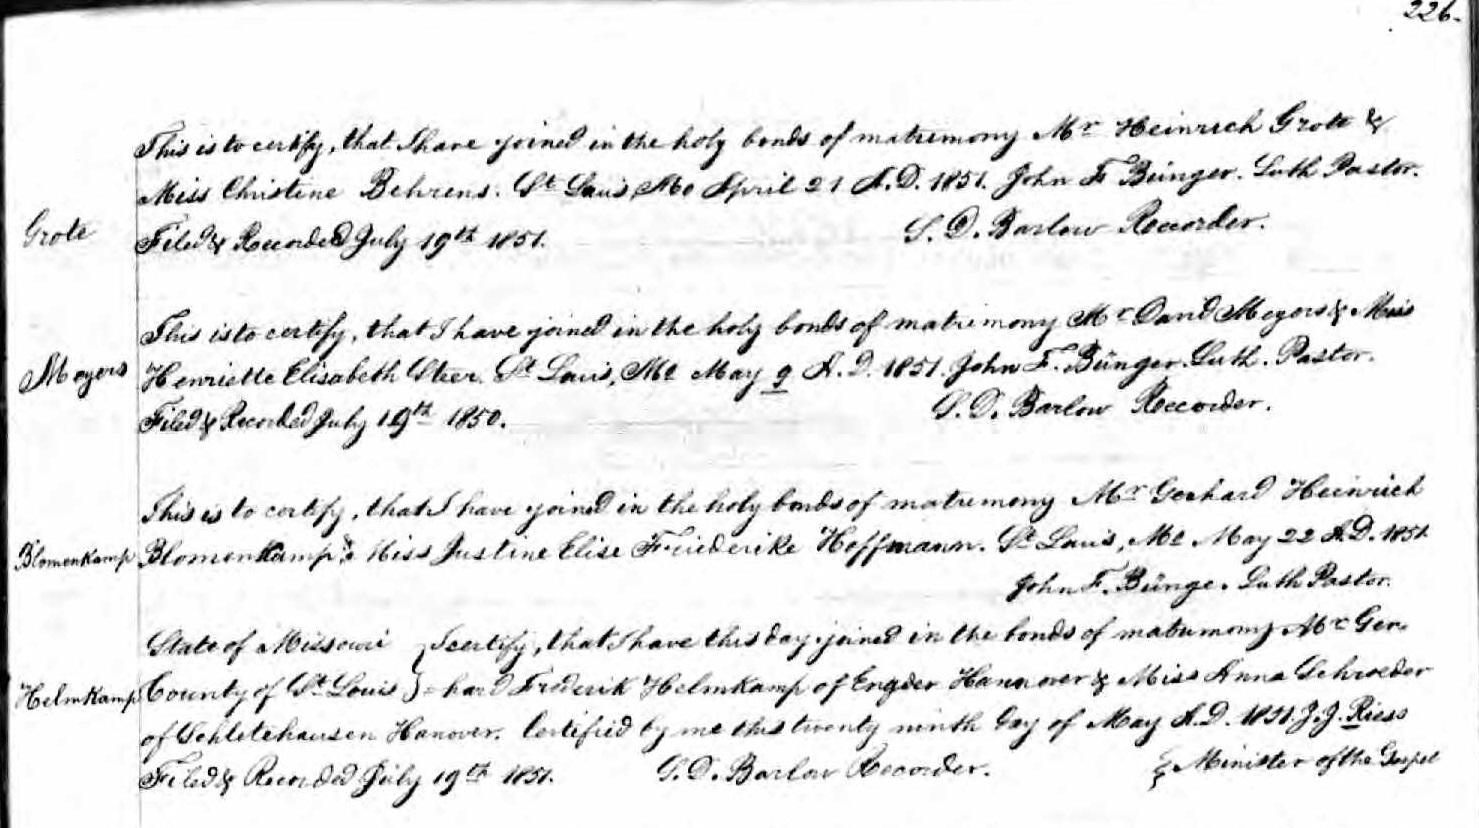 226.
This is to certify, that I have joined in the holy bonds of matrimony Mr Heinrich Grote &
Miss Christine Behrens. St Louis, Mo April 21 A.D. 1851. John F Bünger. Luth Pastor.
Grote
Filed & Recorded July 19th 1851. S. D. Barlow Recorder.
This is to certify, that I have joined in the holy bonds of matrimony Mr David Meyers & Miss
Meyers
Henriette Elisabeth Steer. St Louis, Mo May 9 A.D. 1851. John F. Bünger. Luth. Pastor.
Filed & Recorded July 19th 1850. S. D. Barlow Recorder.
This is to certify, that I have joined in the holy bonds of matrimony Mr Gerhard Heinrich
Blomenkamp
Blomenkamp & Miss Justine Elise Friederike Hoffmann. St Louis, Mo May 22 A.D. 1851
John F. Bünge. Luth Pastor.
State of Missouri } I certify, that I have this day joined in the bonds of matrimony Mr Ger-
Helmkamp
County of St Louis } = hard Frederik Helmkamp of Engder Hannover & Miss Anna Schroeder
of Schletehausen Hanover. Certified by me this twenty ninth day of May A.D. 1851. J. J. Riess
Filed & Recorded July 19th 1851. S. D. Barlow Recorder. } Minister of the Gospel